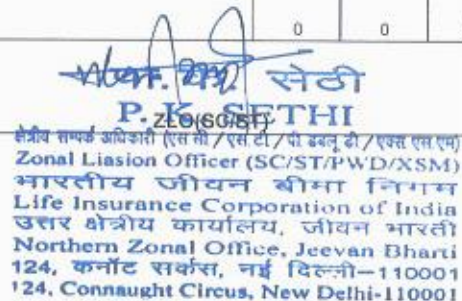 0 0
सेठी
P. K. SETHI
ZLO(SC/ST)
क्षेत्रीय सम्पर्क अधिकारी (एस सी / एस टी / पी डबलू डी / एक्स एस एम)
Zonal Liasion Officer (SC/ST/PWD/XSM)
भारतीय जीवन बीमा निगम
Life Insurance Corporation of India
उत्तर क्षेत्रीय कार्यालय, जीवन भारती
Northern Zonal Office, Jeevan Bharti
124, कनॉट सर्कस, नई दिल्ली-110001
124, Connaught Circus, New Delhi-110001